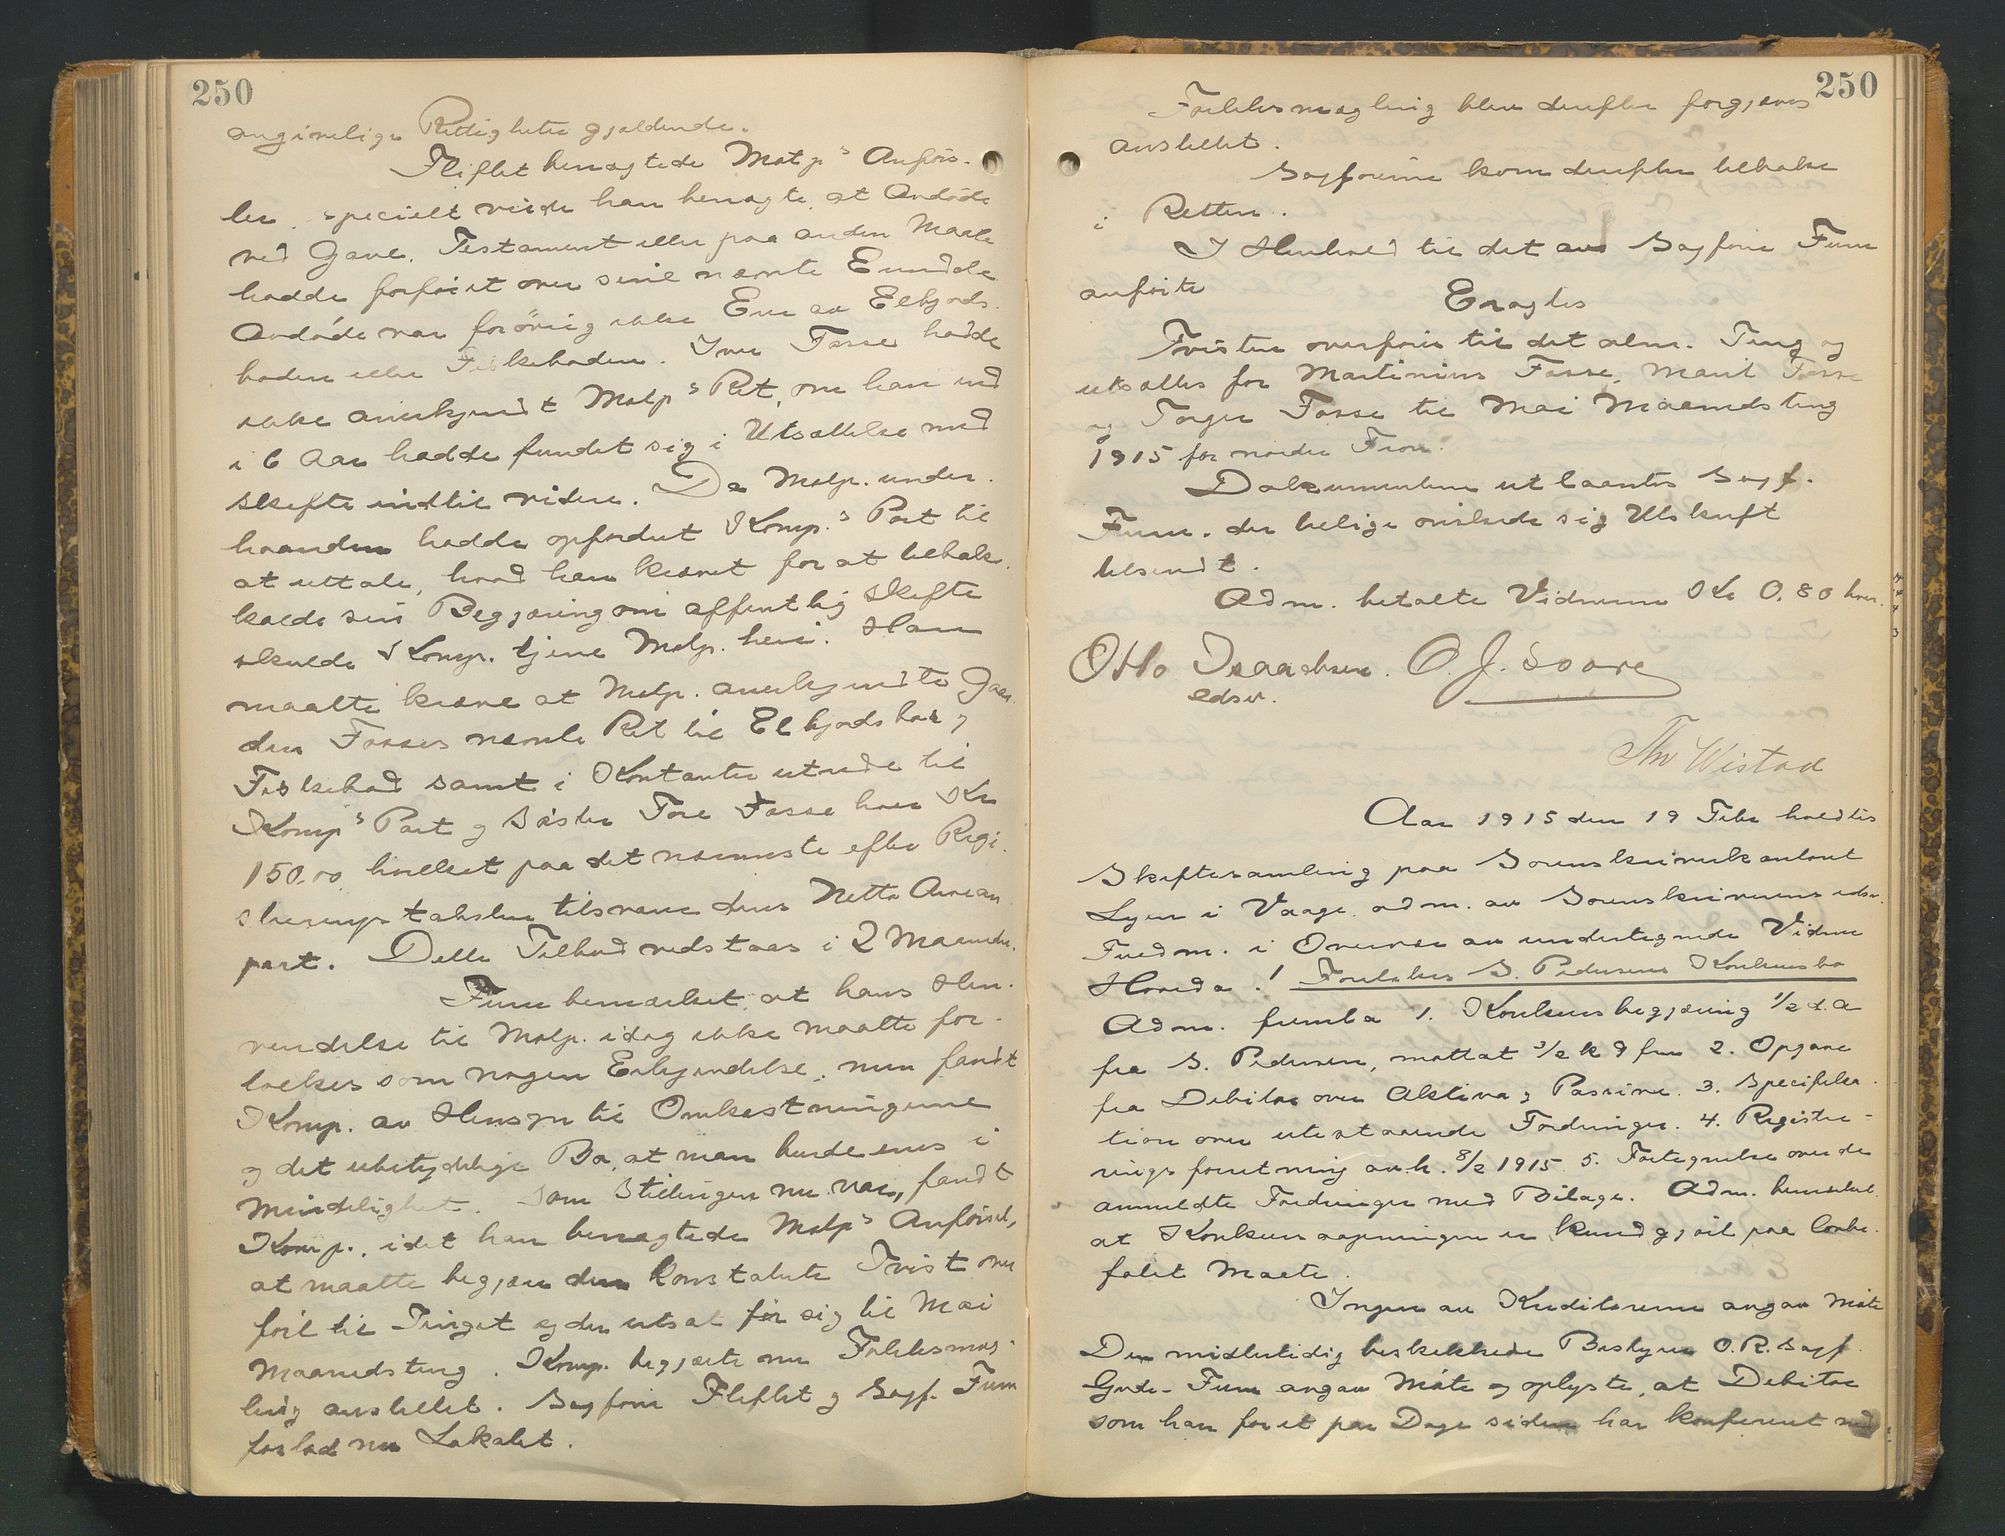 250
angivelige Rettigheter gjældende.
Fliflet benegtede Motp's Anførs-
ler, specielt vilde han benegte, at Avdøde
ved Gave, Testament eller paa anden Maate
hadde forføiet over sine nævnte Eiendele.
Avdøde var forøvrig ikke Eier av Elbjords-
boden eller Fiskeboden. Iver Fosse hadde
ikke anerkjendt Motp's Ret, om han end
i 6 Aar hadde fundet sig i Utsættelse med
Skifte indtil videre. Da Motp. under-
haanden hadde opfordret Komp.'s Part til
at uttale, hvad han krævet for at tilbake-
kalde sin Begjæring om offentlig Skifte
skulde Komp. tjene Motp. heri. Han
maatte kræve at Motp. anerkjendte Gaar-
den Fosses nævnte Ret til Elbjordsbod og
Fiskebod samt i Kontanter utrede til
Komp's Part og Søster Tore Fosse hver Kr
150.00 hvilket paa det nærmeste efter Regi-
streringstaksten tilsvarer deres Netto Arvean-
part. Dette Tilbud vedstaaes i 2 Maaneder.
Funn bemærket, at hans Hen-
vendelse til Motp. idag ikke maatte for-
tolkes som nogen Erkjendelse, men fandt
Komp. av Hensyn til Omkostningerne
og det ubetydelige Bo, at man burde enes i
Mindelighet. Som Stillingen nu var, fandt
Komp., idet han benegtede Motp's Anførsel,
at maatte begjære den konstaterte Tvist over
ført til Tinget og den utsat for sig til Mai
Maanedsting. Komp. begjærte nu Forliksmæg-
ling anstillet. Sagfører Fliflet og Sagf. Funn
forlod nu Lokalet.
250
Forliksmegling blev derefter forgjæves
anstillet.
Sagførerne kom derefter tilbake
i Retten.
I Henhold til det av Sagfører Funn
anførte
Eragtes
Tvisten overføres til det alm. Ting og
utsættes for Martinius Fosse, Marit Fosse
og Torger Fosse til Mai Maanedsting
1915 for nordre Fron.
Dokumenterne utlaantes Sagf.
Funn, der tillige ønskede sig Utskrift
tilsendt.
Adm. betalte Vidnerne Kr 0.80 hver.
Otto Isaachsen. O. J. Soare
edsv.
Thv Wistad
Aar 1915 den 19 Febr holdtes
Skiftesamling paa Sorenskriverkontoret
Lyen i Vaage adm. av Sorenskriverens edsv.
Fuldm. i Overvær av undertegnede Vidner
Hvorda: 1 Forelskes S. Pedersens Konkursbo
Adm. fremla 1. Konkursbegjæring 1/2 d. a
fra S. Pedersen, mottat 3/2 kl 9 fm 2. Opgave
fra Debitor over Aktiva og Passiva. 3. Specifika-
tion over utestaaende Fordringer. 4. Registre-
ringsforretning avh. 8/2 1915. 5. Fortegnelse over de
anmeldte Fordringer med Bilage. Adm. bemerket
at Konkursaapningen er kundgjort paa lovbe-
falet Maate.
Ingen av Kreditorerne angav Møte
Den midlertidig beskikkede Bestyrer O.R.Sagf.
Gude-Funn angav Møte og oplyste, at Debitor
som han for et par Dage siden har konferert med